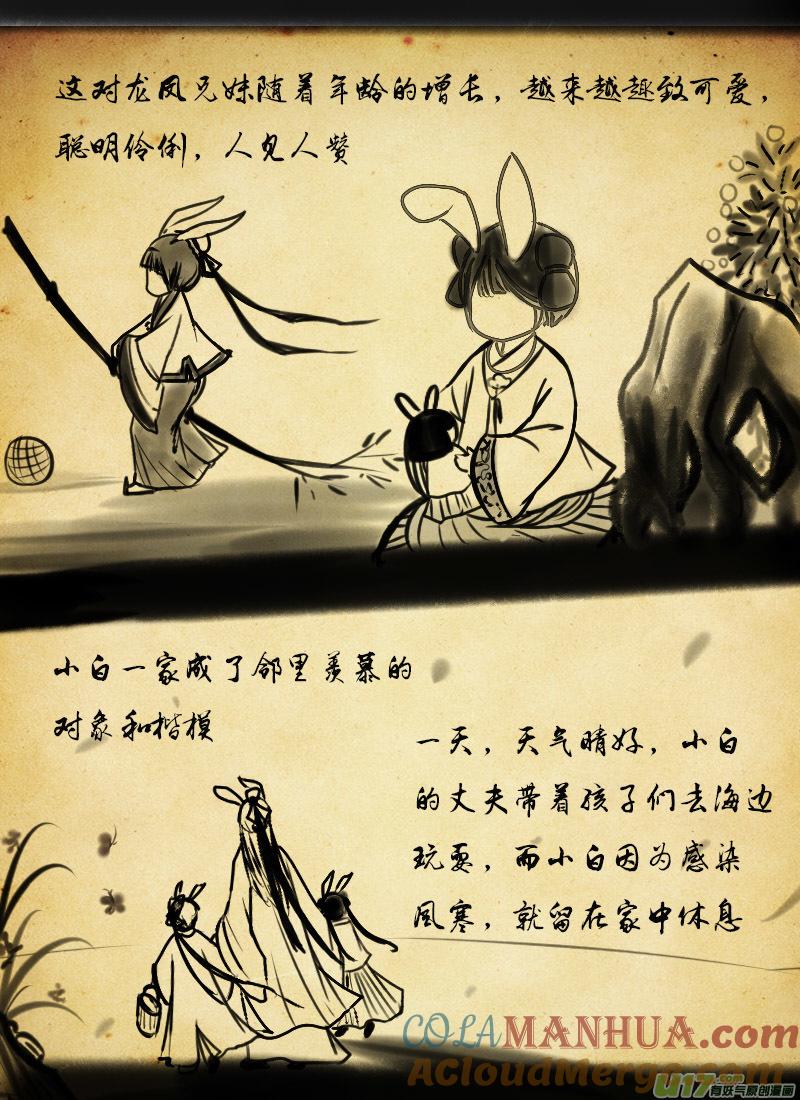 这对龙凤兄妹随着年龄的增长，越来越趣致可爱，
聪明伶俐，人见人赞
小白一家成了邻里羡慕的
对象和楷模
一天，天气晴好，小白
的丈夫带着孩子们去海边
玩耍，而小白因为感染
风寒，就留在家中休息
COLAMANHUA.com
ACloudMerge
U17
有妖气原创漫画